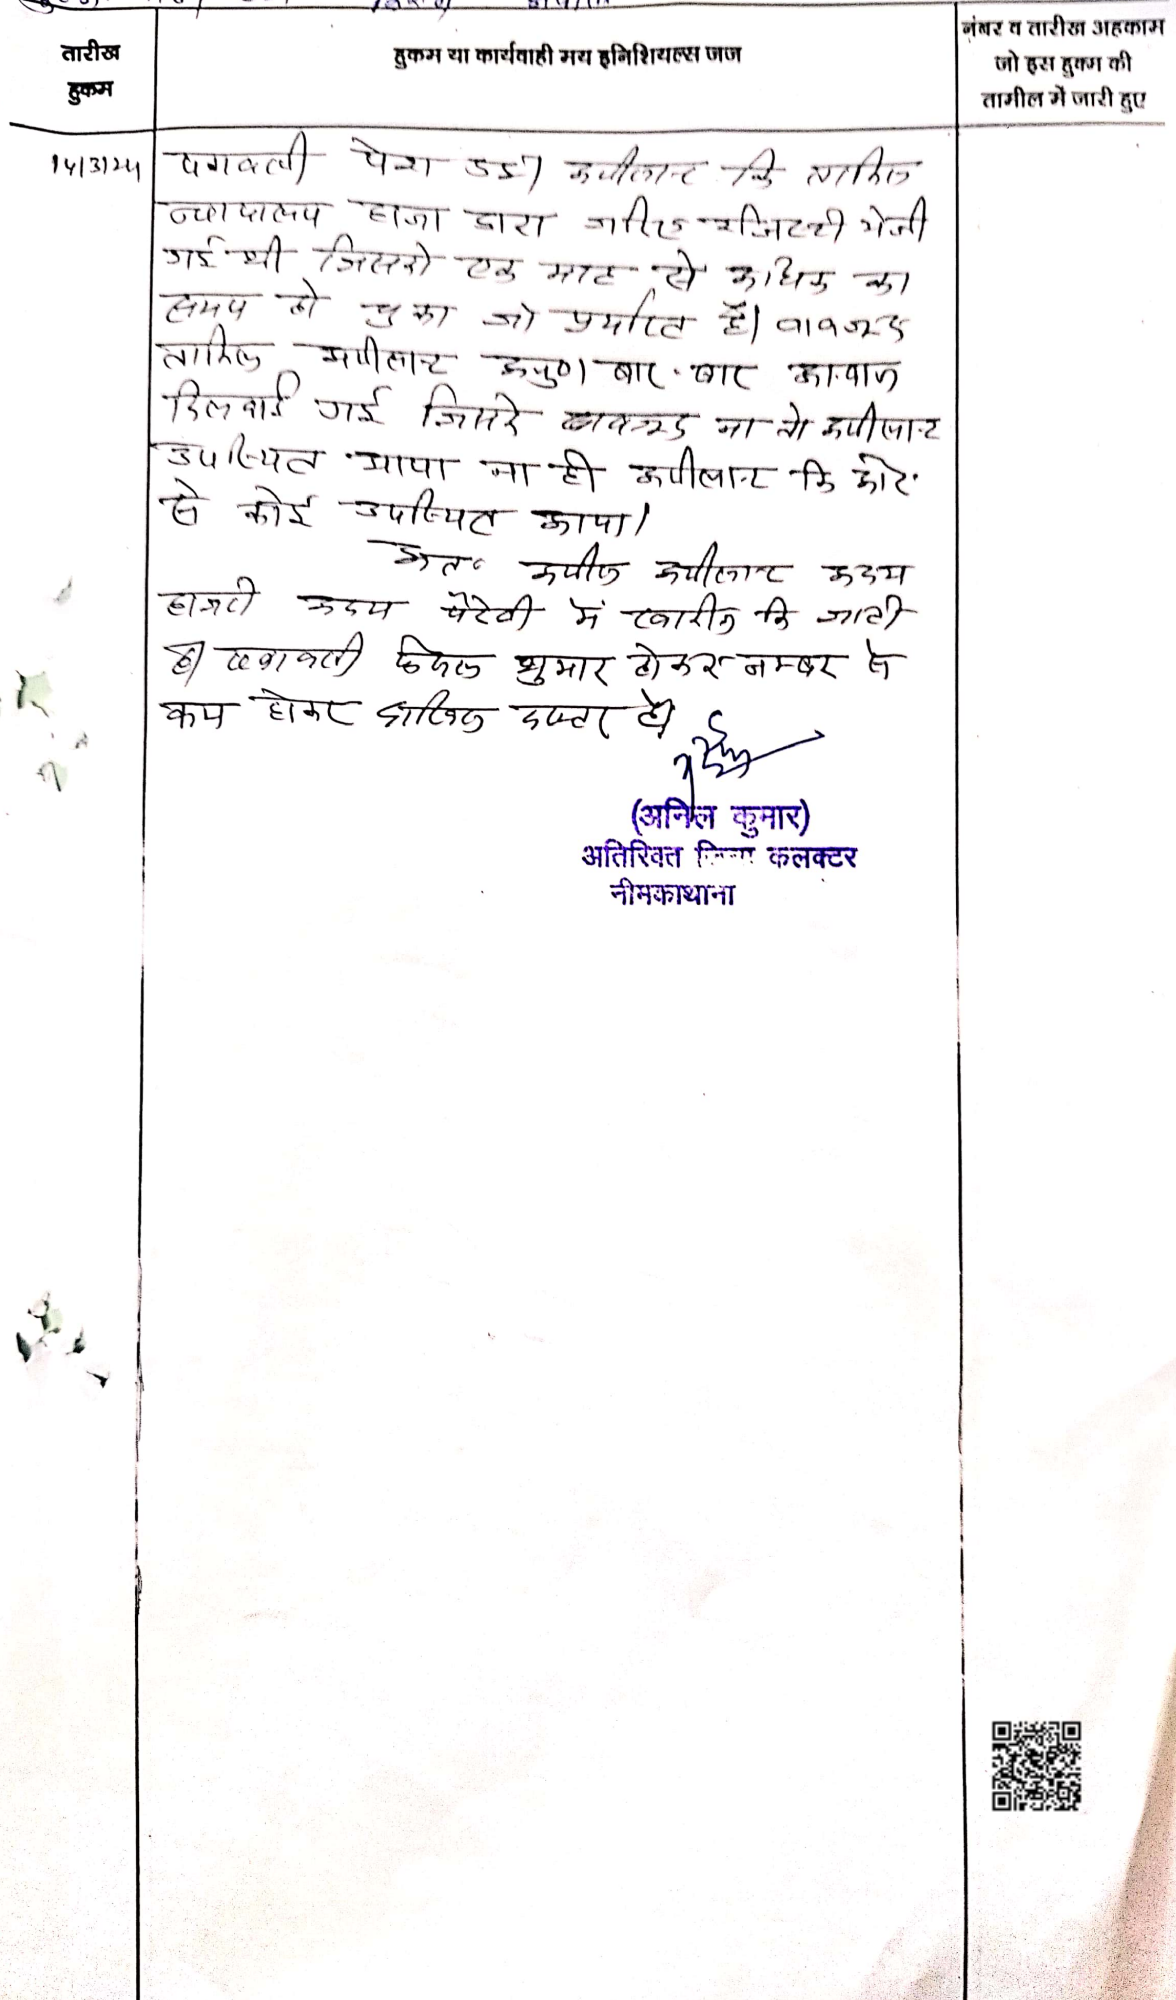 तारीख
हुकम
हुकम या कार्यवाही मय इनिशियल्स जज
नंबर व तारीख अहकाम
जो इस हुक्म की
तामील में जारी हुए
14/3/24
पत्रावली पेश हुई। अपीलान्ट कि तामिल
न्यायालय हाजा द्वारा जरिए रजिस्ट्री भेजी
गई थी जिसको एक माह से अधिक का
समय हो चुका जो पर्याप्त है। बावजूद
तामिल अपीलान्ट अनु०। बार-बार आवाज
दिलवाई गई जिसके बावजूद ना तो अपीलान्ट
उपस्थित आया ना ही अपीलान्ट कि ओर
से कोई उपस्थित आया।
अतः अपील अपीलान्ट अदम
हाजरी अदम पैरवी में खारीज कि जाती
है। पत्रावली फैसल शुमार होकर नम्बर से
कम होकर दाखिल दफ्तर हो।
(अनिल कुमार)
अतिरिक्त जिला कलक्टर
नीमकाथाना